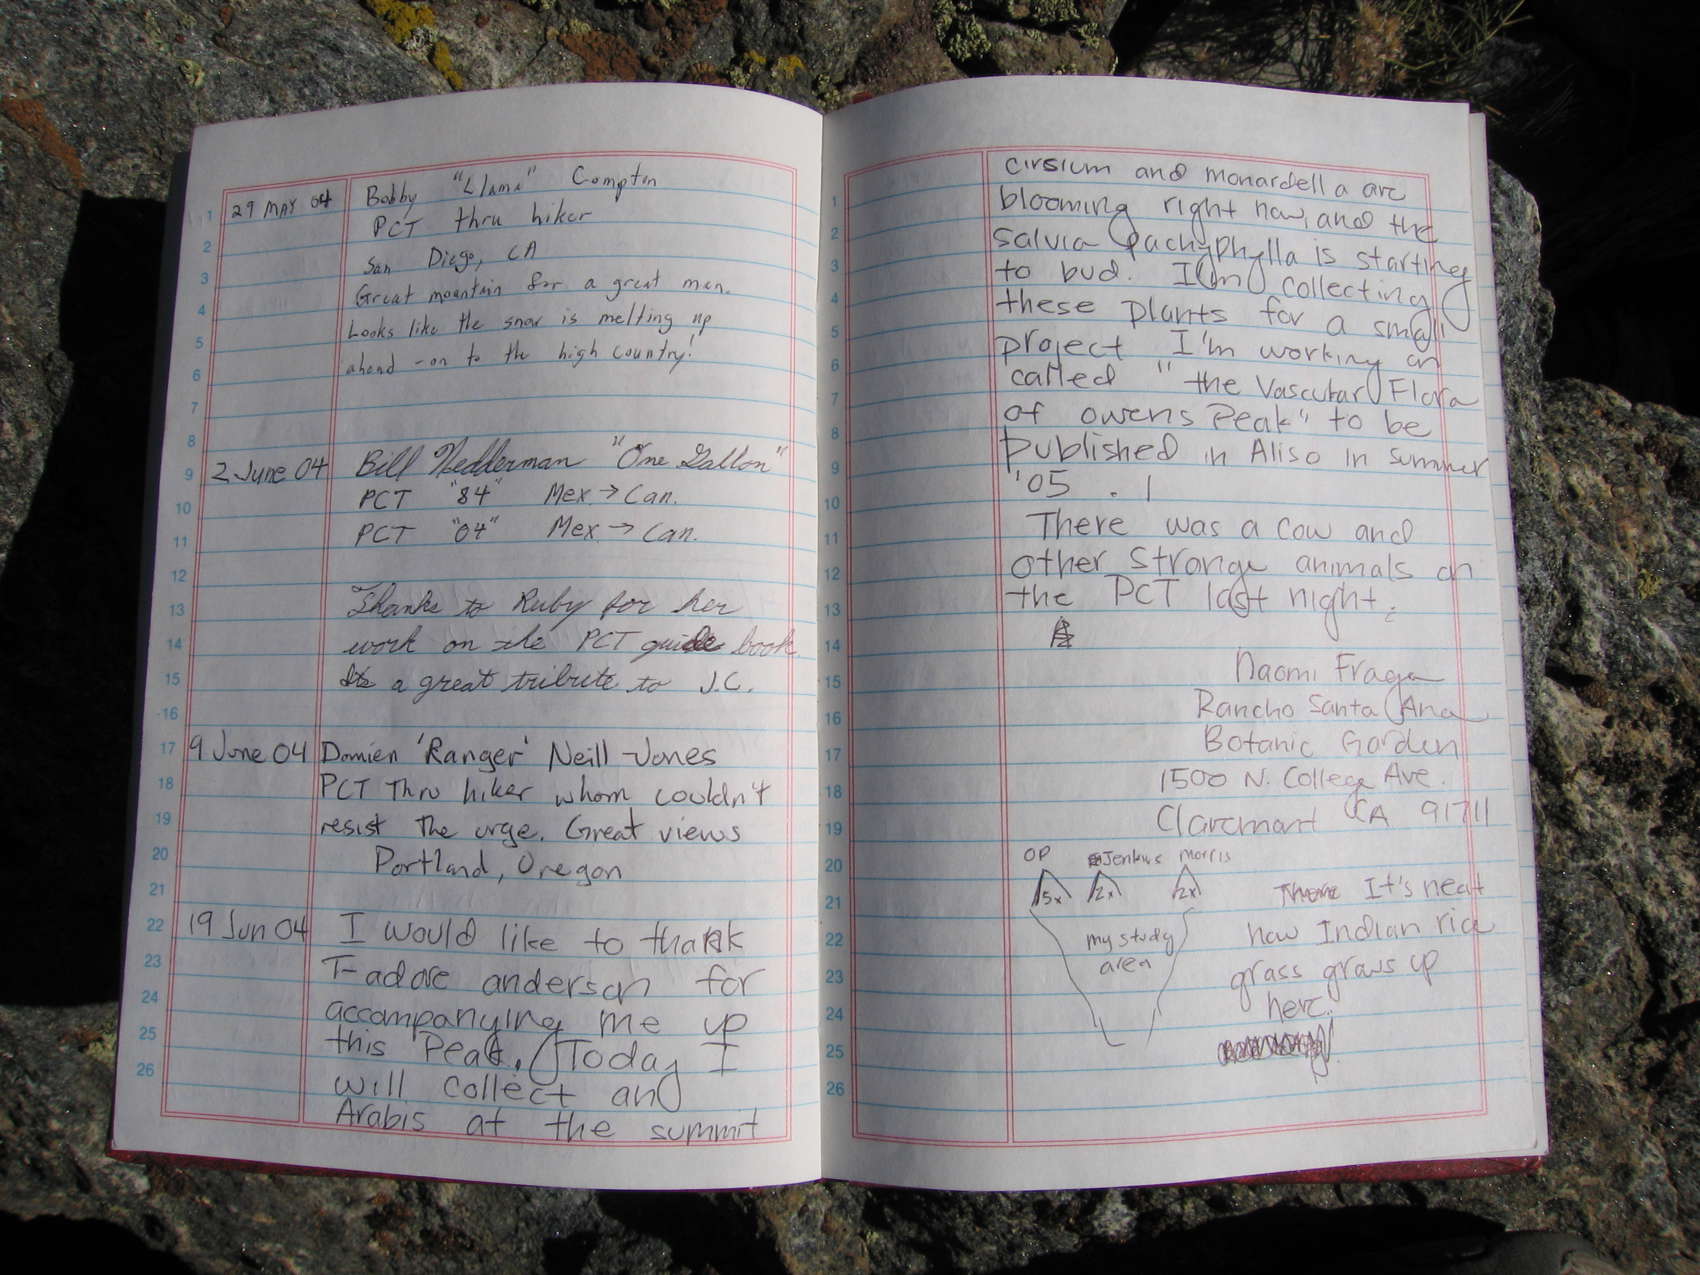 29 MAY 04 Bobby "Llama" Compton
PCT thru hiker
San Diego, CA
Great mountain for a great man.
Looks like the snow is melting up
ahead - on to the high country!
2 June 04 Bill Nedderman "One Gallon"
PCT "84" Mex → Can.
PCT "04" Mex. → Can.
Thanks to Ruby for her
work on the PCT guide book
Its a great tribute to J.C.
9 June 04 Damien 'Ranger' Neill-Jones
PCT Thru hiker whom couldn't
resist The urge. Great views
Portland, Oregon
19 Jun 04 I would like to thank
T-adore anderson for
accompanying me up
this Peak, Today I
will collect and
Arabis at the summit
cirsium and monardella are
blooming right now, and the
salvia pachyphylla is starting
to bud. I'm collecting
these plants for a small
project I'm working on
called "the Vascular Flora
of owens Peak" to be
published in Aliso in summer
'05.
There was a cow and
other strange animals on
the PCT last night.
Naomi Fraga
Rancho Santa Ana
Botanic Garden
1500 N. College Ave.
Claremont CA 91711
OP Jenkins Morris
5x 2x 2x
my study
area
It's neat
how Indian rice
grass grows up
here.
1
2
3
4
5
6
7
8
9
10
11
12
13
14
15
16
17
18
19
20
21
22
23
24
25
26
1
2
3
4
5
6
7
8
9
10
11
12
13
14
15
16
17
18
19
20
21
22
23
24
25
26